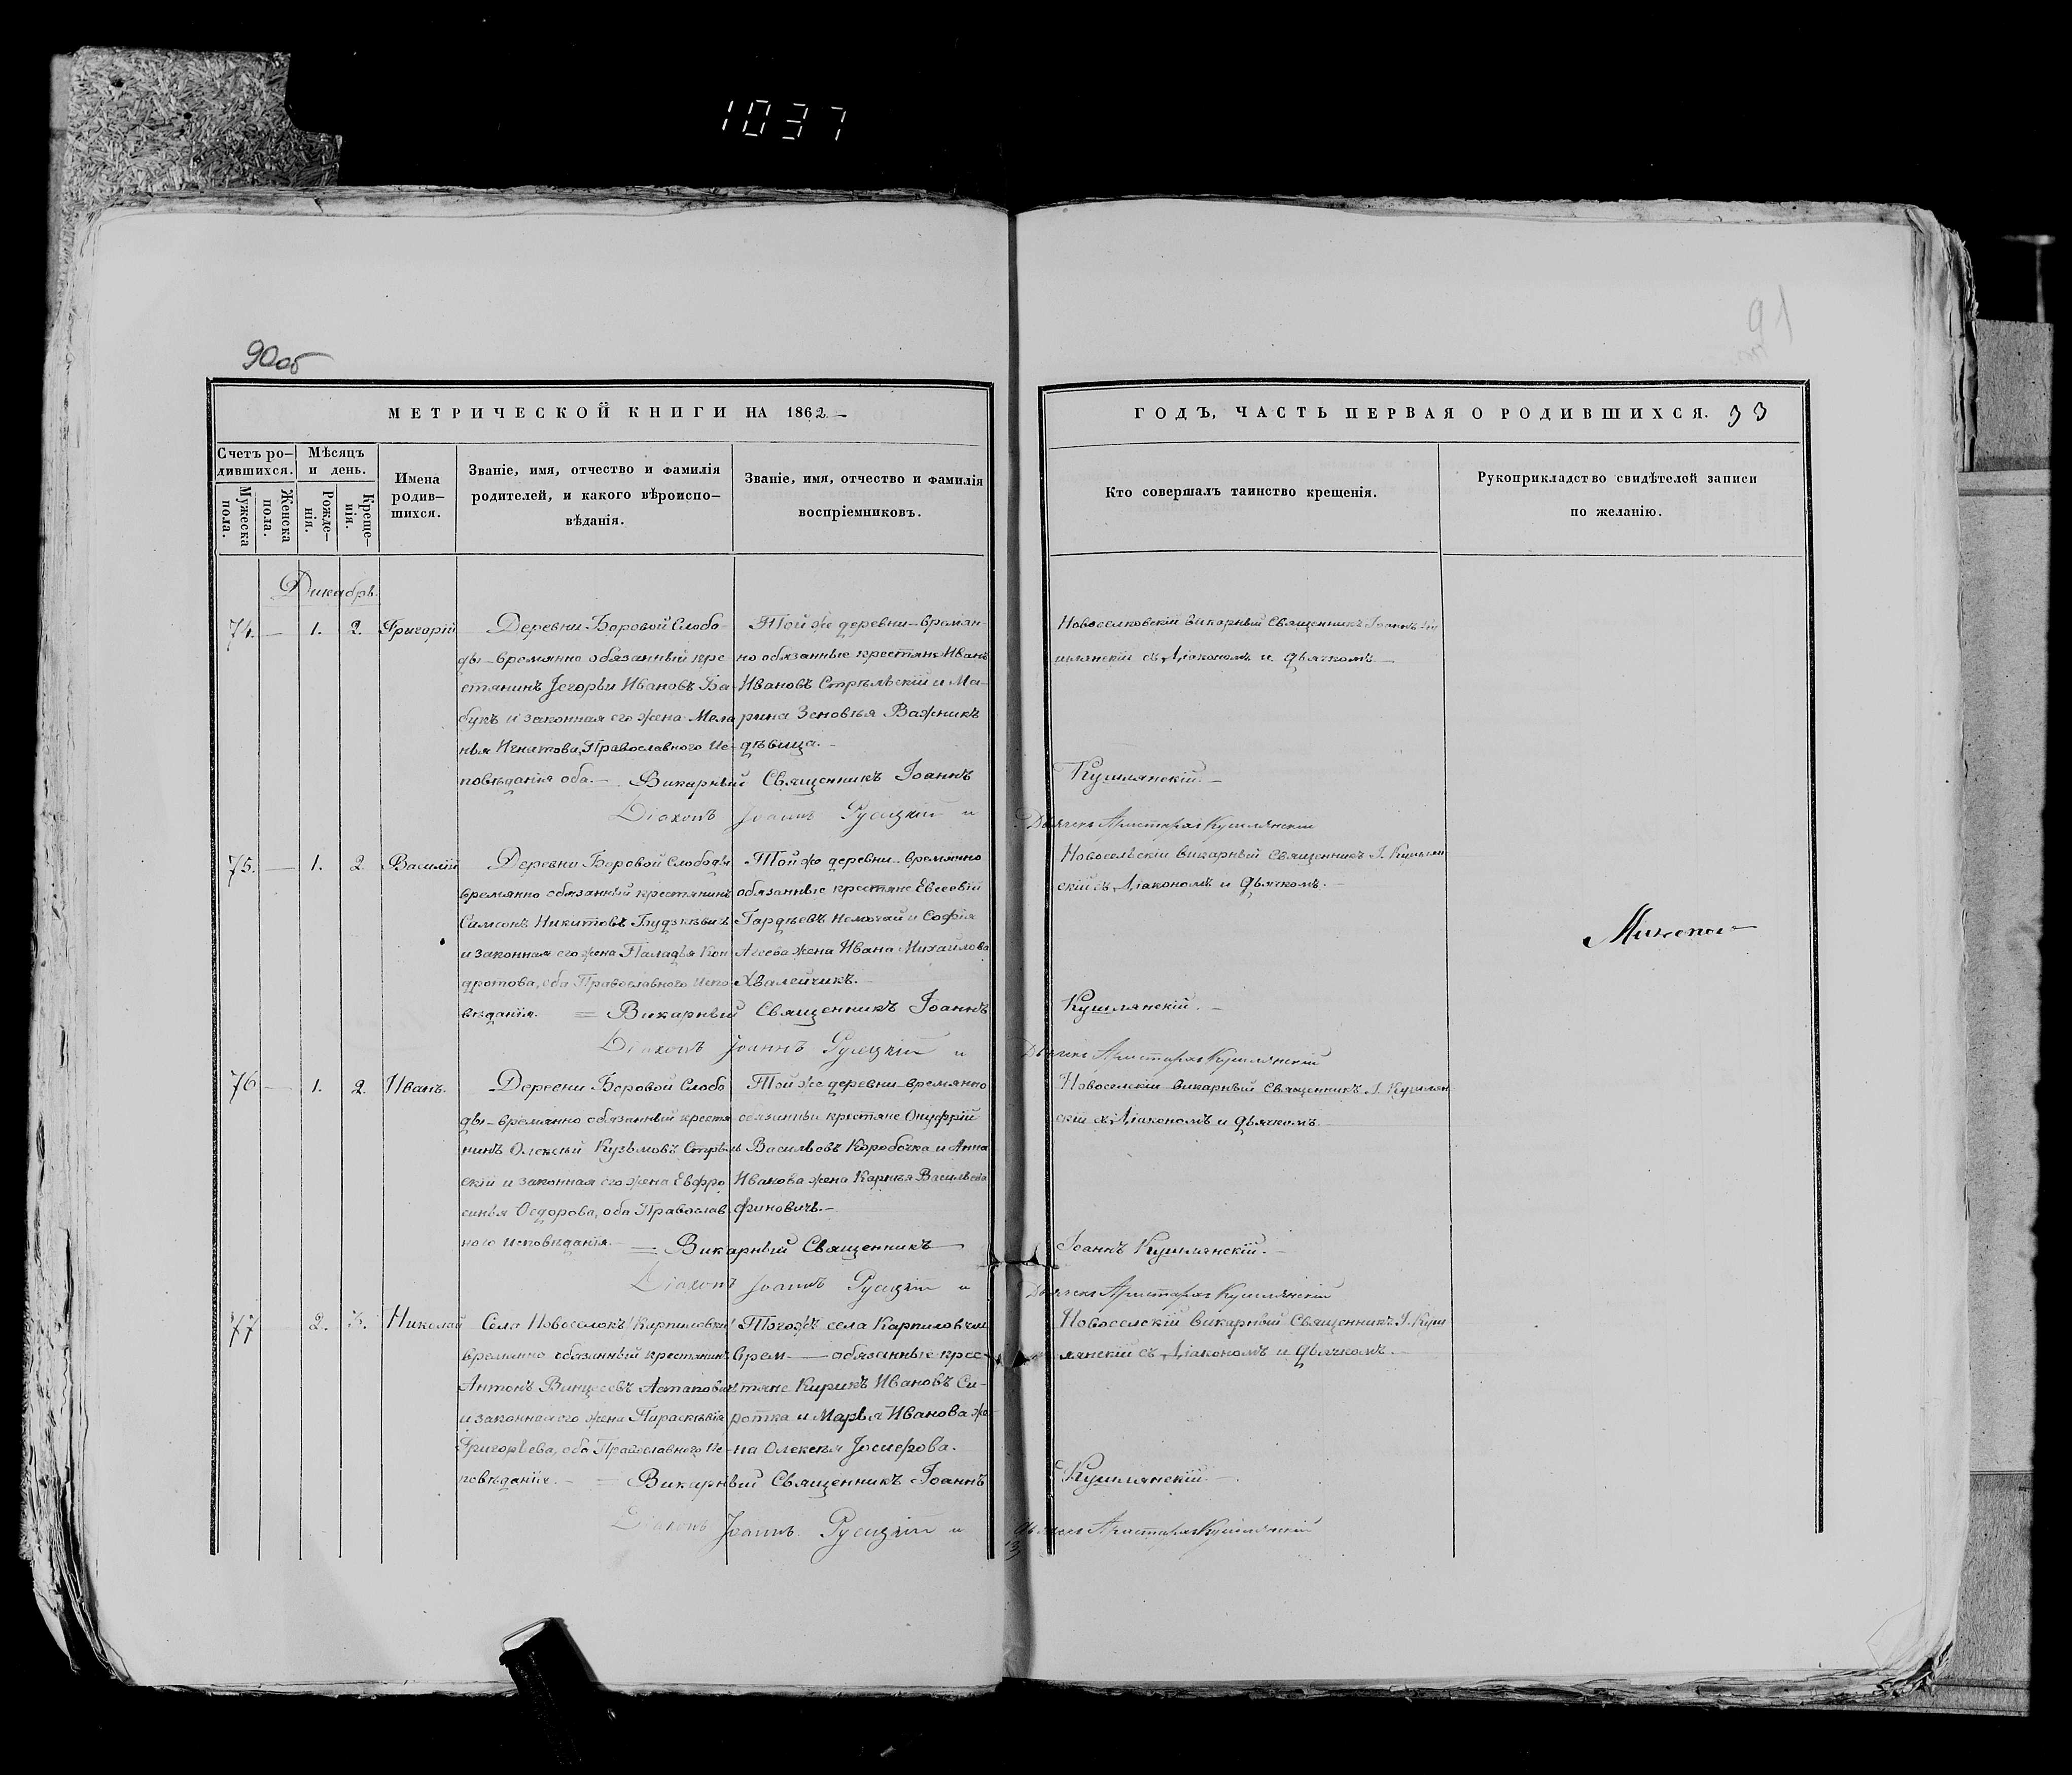 1037
90об
91
МЕТРИЧЕСКОЙ КНИГИ НА 1862.—
Счетъ ро—
дившихся.
Мѣсяцъ
и день.
Мужеска
пола.
Женска
пола.
Рожде—
нія.
Креще—
нія.
Имена
родив—
шихся.
Званіе, имя, отчество и фамилія
родителей, и какого вѣроиспо—
вѣданія.
Званіе, имя, отчество и фамилія
воспріемниковъ.
ГОДЪ, ЧАСТЬ ПЕРВАЯ О РОДИВШИХСЯ. 33
Кто совершалъ таинство крещенія.
Рукоприкладство свидѣтелей записи
по желанію.
Дикабрь.
74. — 1. 2. Григорій
Деревни Боровой Слобо-
ды — времянно обязанный кре
стянинъ Іегорьи Ивановъ Ба
букъ и законная его жена Мела
нья Игнатова, Православного Ис-
повѣданія оба.—
Той же деревни — времян-
но обязанные крестяне Иванъ
Ивановъ Стрѣльскій и Ма-
рина Зеновья Важникъ
дѣвица.—
Новоселковскій викарный Священникъ Іоаннъ
шлянскій съ Діакономъ и дьячкомъ.—
Викарный Священникъ Іоаннъ Кушлянскій.—
Діаконъ Іоаннъ Русецкій и Дьячекъ Аристархъ Кушлянскій
75. — 1. 2 Василій
Деревни Боровой Слободы
времянно обязанный крестянинъ
Симсонъ Никитовъ Будзкѣвичъ
и законная его жена Паладья Кон
дротова, оба Православного Испо
вѣданія.
Той же деревни — времянно
обязанные крестяне Евсевій
Гордѣевъ Немогай и Софія
жена Ивана Михайлова
Хвалейчикъ.—
Новосельскій викарный Священникъ І. Кушлян
скій съ Діакономъ и Дьячкомъ.—
= Викарный Священникъ Іоаннъ Кушлянскій.—
Діаконъ Іоаннъ Русецкій и Дьячекъ Аристархъ Кушлянскій
76 — 1. 2. Иванъ.
Деревни Боровой Слобо
ды — времянно обязанный крестя
нинъ Олексѣй Кузьмовъ Стрѣль
скій и законная его жена Евфро
синья Ѳедорова, оба Православ
ного исповѣданія.
Той же деревни — времянно
обязанныи крестяне Онуфрій
Васильевъ Коробочка и Анна
Иванова жена Карнѣя Васильева
финовичъ.—
Новоселскій викарный Священникъ І. Кушлян
скій съ Діакономъ и дьячкомъ.
= Викарный Священникъ Іоаннъ Кушлянскій.—
Діаконъ Іоаннъ Русецкій и Дьячекъ Аристархъ Кушлянскій
77 2. 3. Николай
Села Новоселокъ /Карпиловки/
времянно обязанный крестянинъ
Антонъ Винцесовъ Астаповичъ
и законная его жена Параскѣвія
Григорьева, оба Православного Ис-
повѣданія.—
Тогожъ села Карпиловчи
Врем — обязанные крес-
тяне Кирикъ Ивановъ Си-
ротка и Марья Иванова же
на Олексѣя Іосиерова.
Новоселскій викарный Священникъ І. Куш
лянскій съ Діакономъ и дьячкомъ.—
= Викарный Священникъ Іоаннъ Кушлянскій.—
Діаконъ Іоаннъ Русецкій и Дьячекъ Аристархъ Кушлянскій